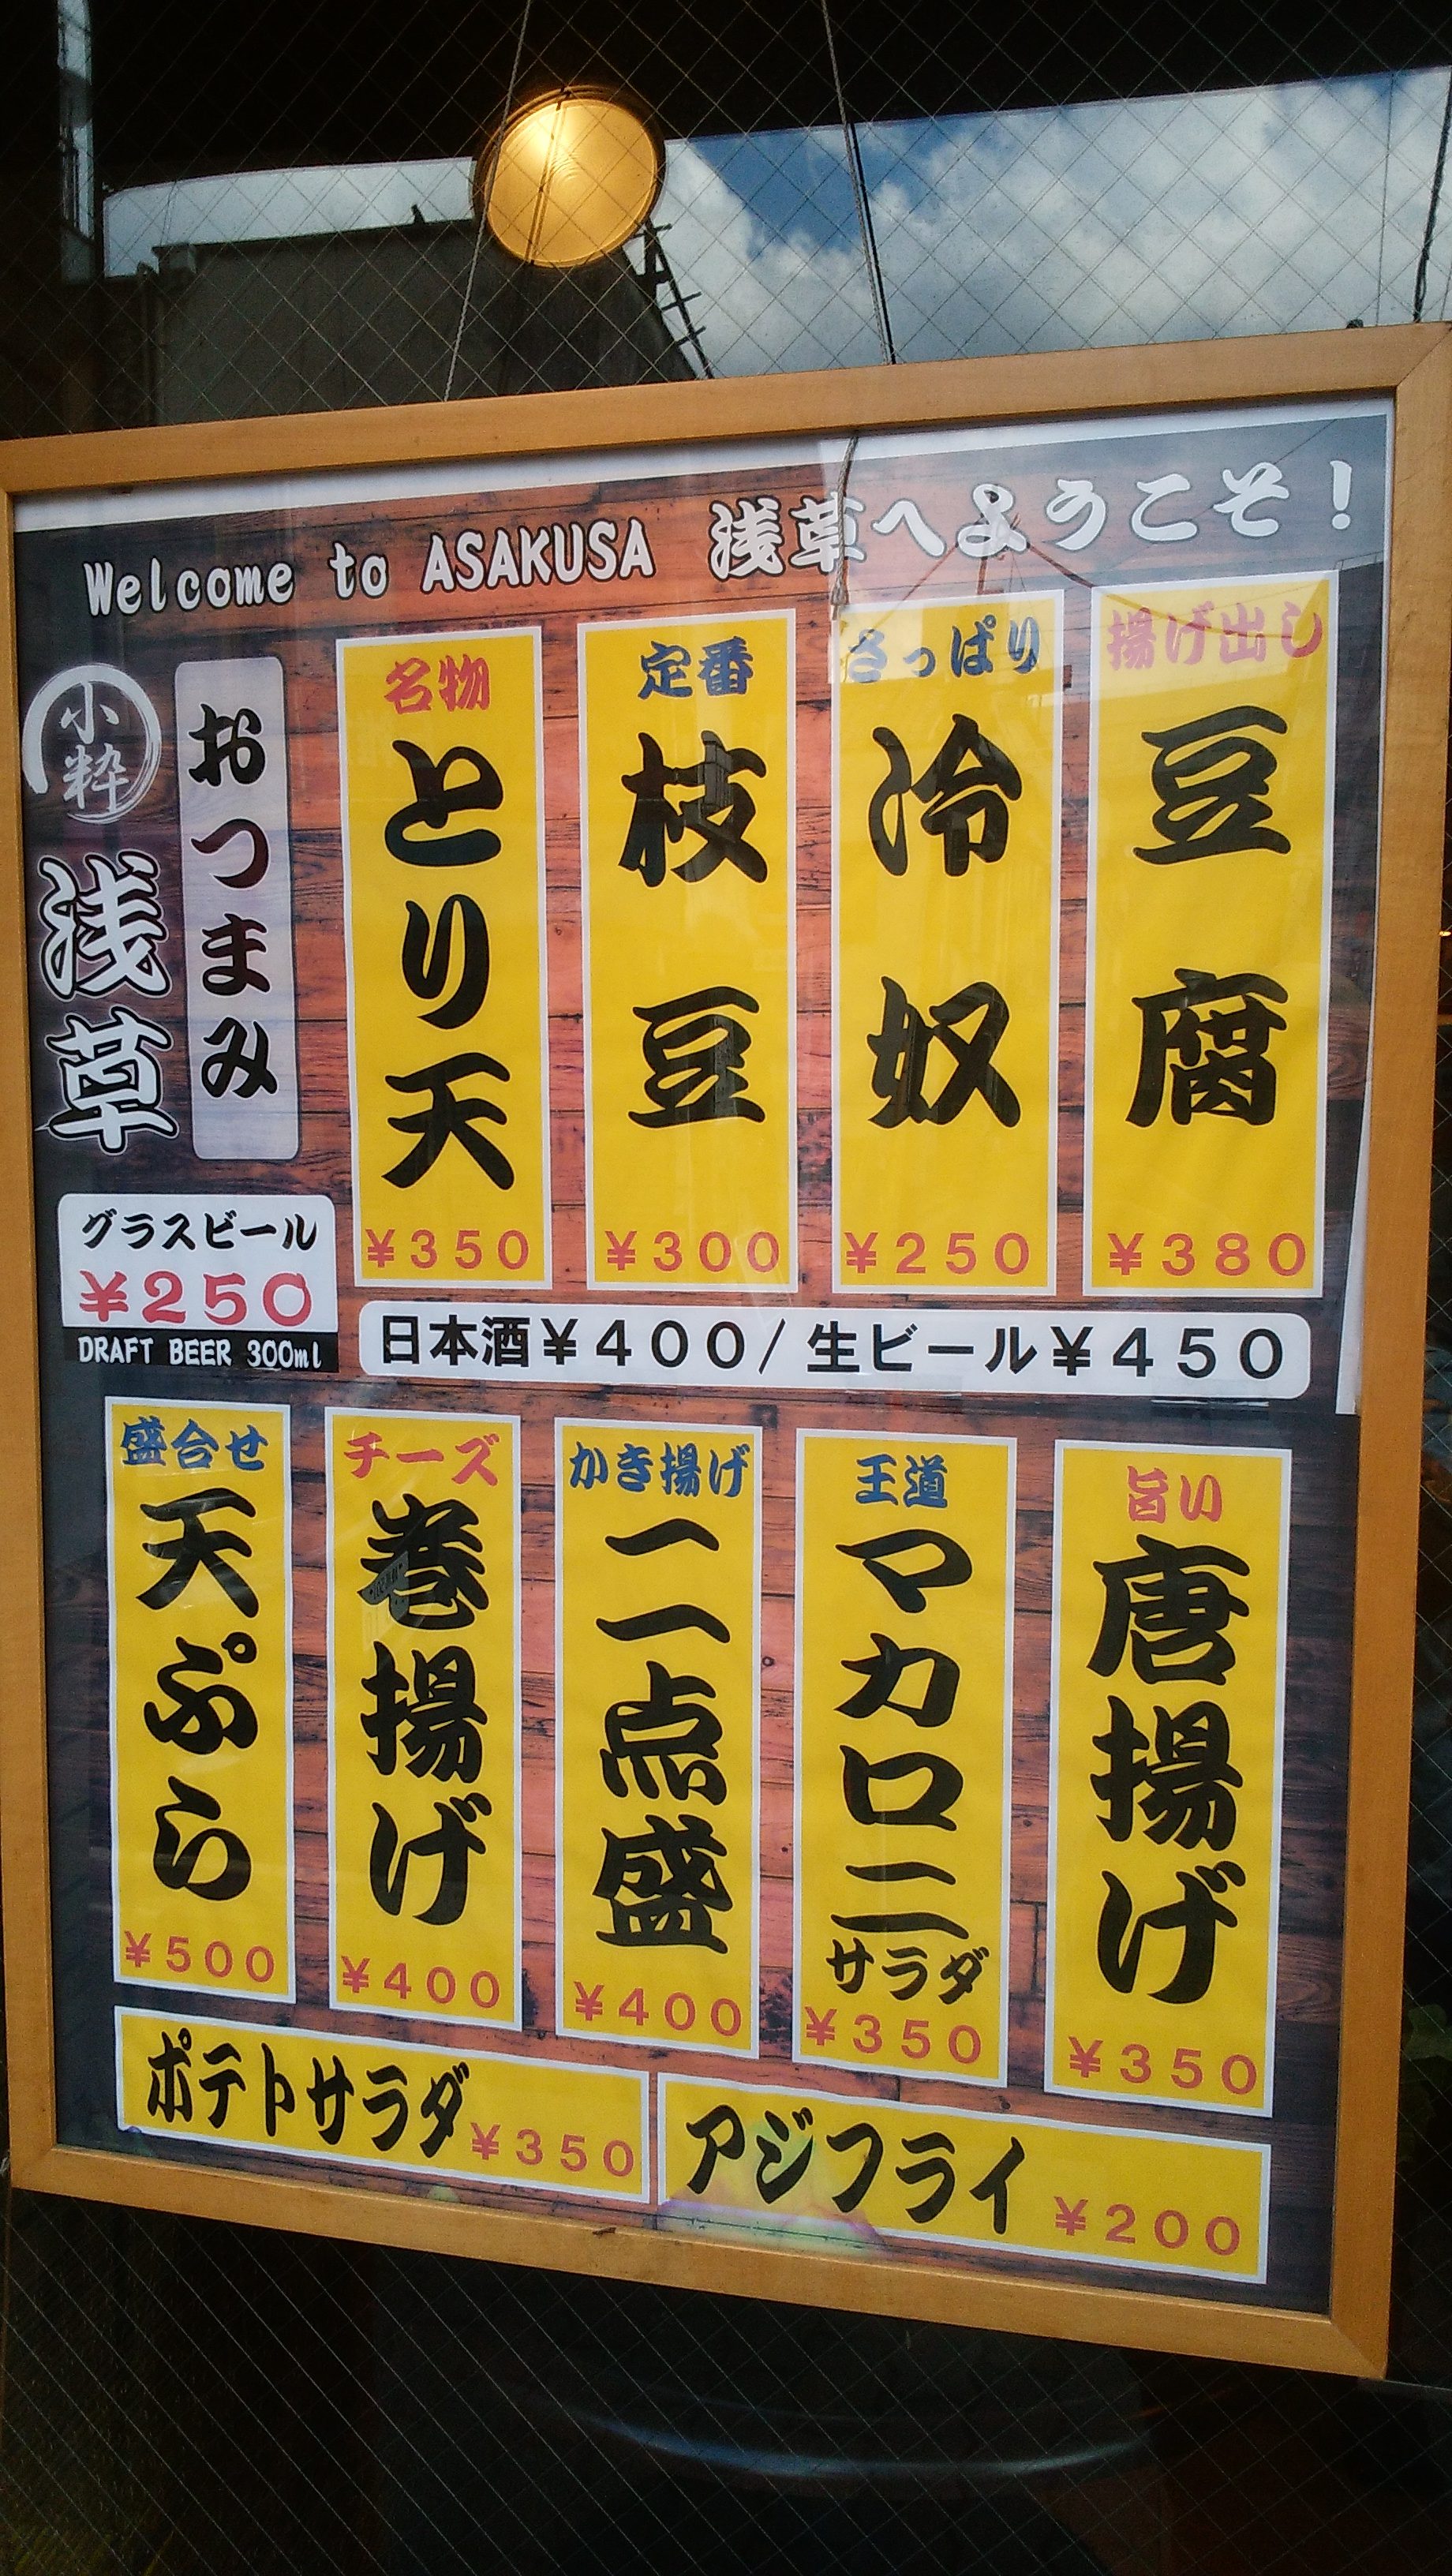 Welcome to ASAKUSA 浅草へようこそ！
小粋
浅草
おつまみ
名物
とり天
¥350
定番
枝豆
¥300
さっぱり
冷奴
¥250
揚げ出し
豆腐
¥380
グラスビール
¥250
DRAFT BEER 300ml
日本酒¥400/生ビール¥450
盛合せ
天ぷら
¥500
チーズ
巻揚げ
¥400
かき揚げ
一一点盛
¥400
王道
マカロニ
サラダ
¥350
旨い
唐揚げ
¥350
ポテトサラダ ¥350
アジフライ ¥200